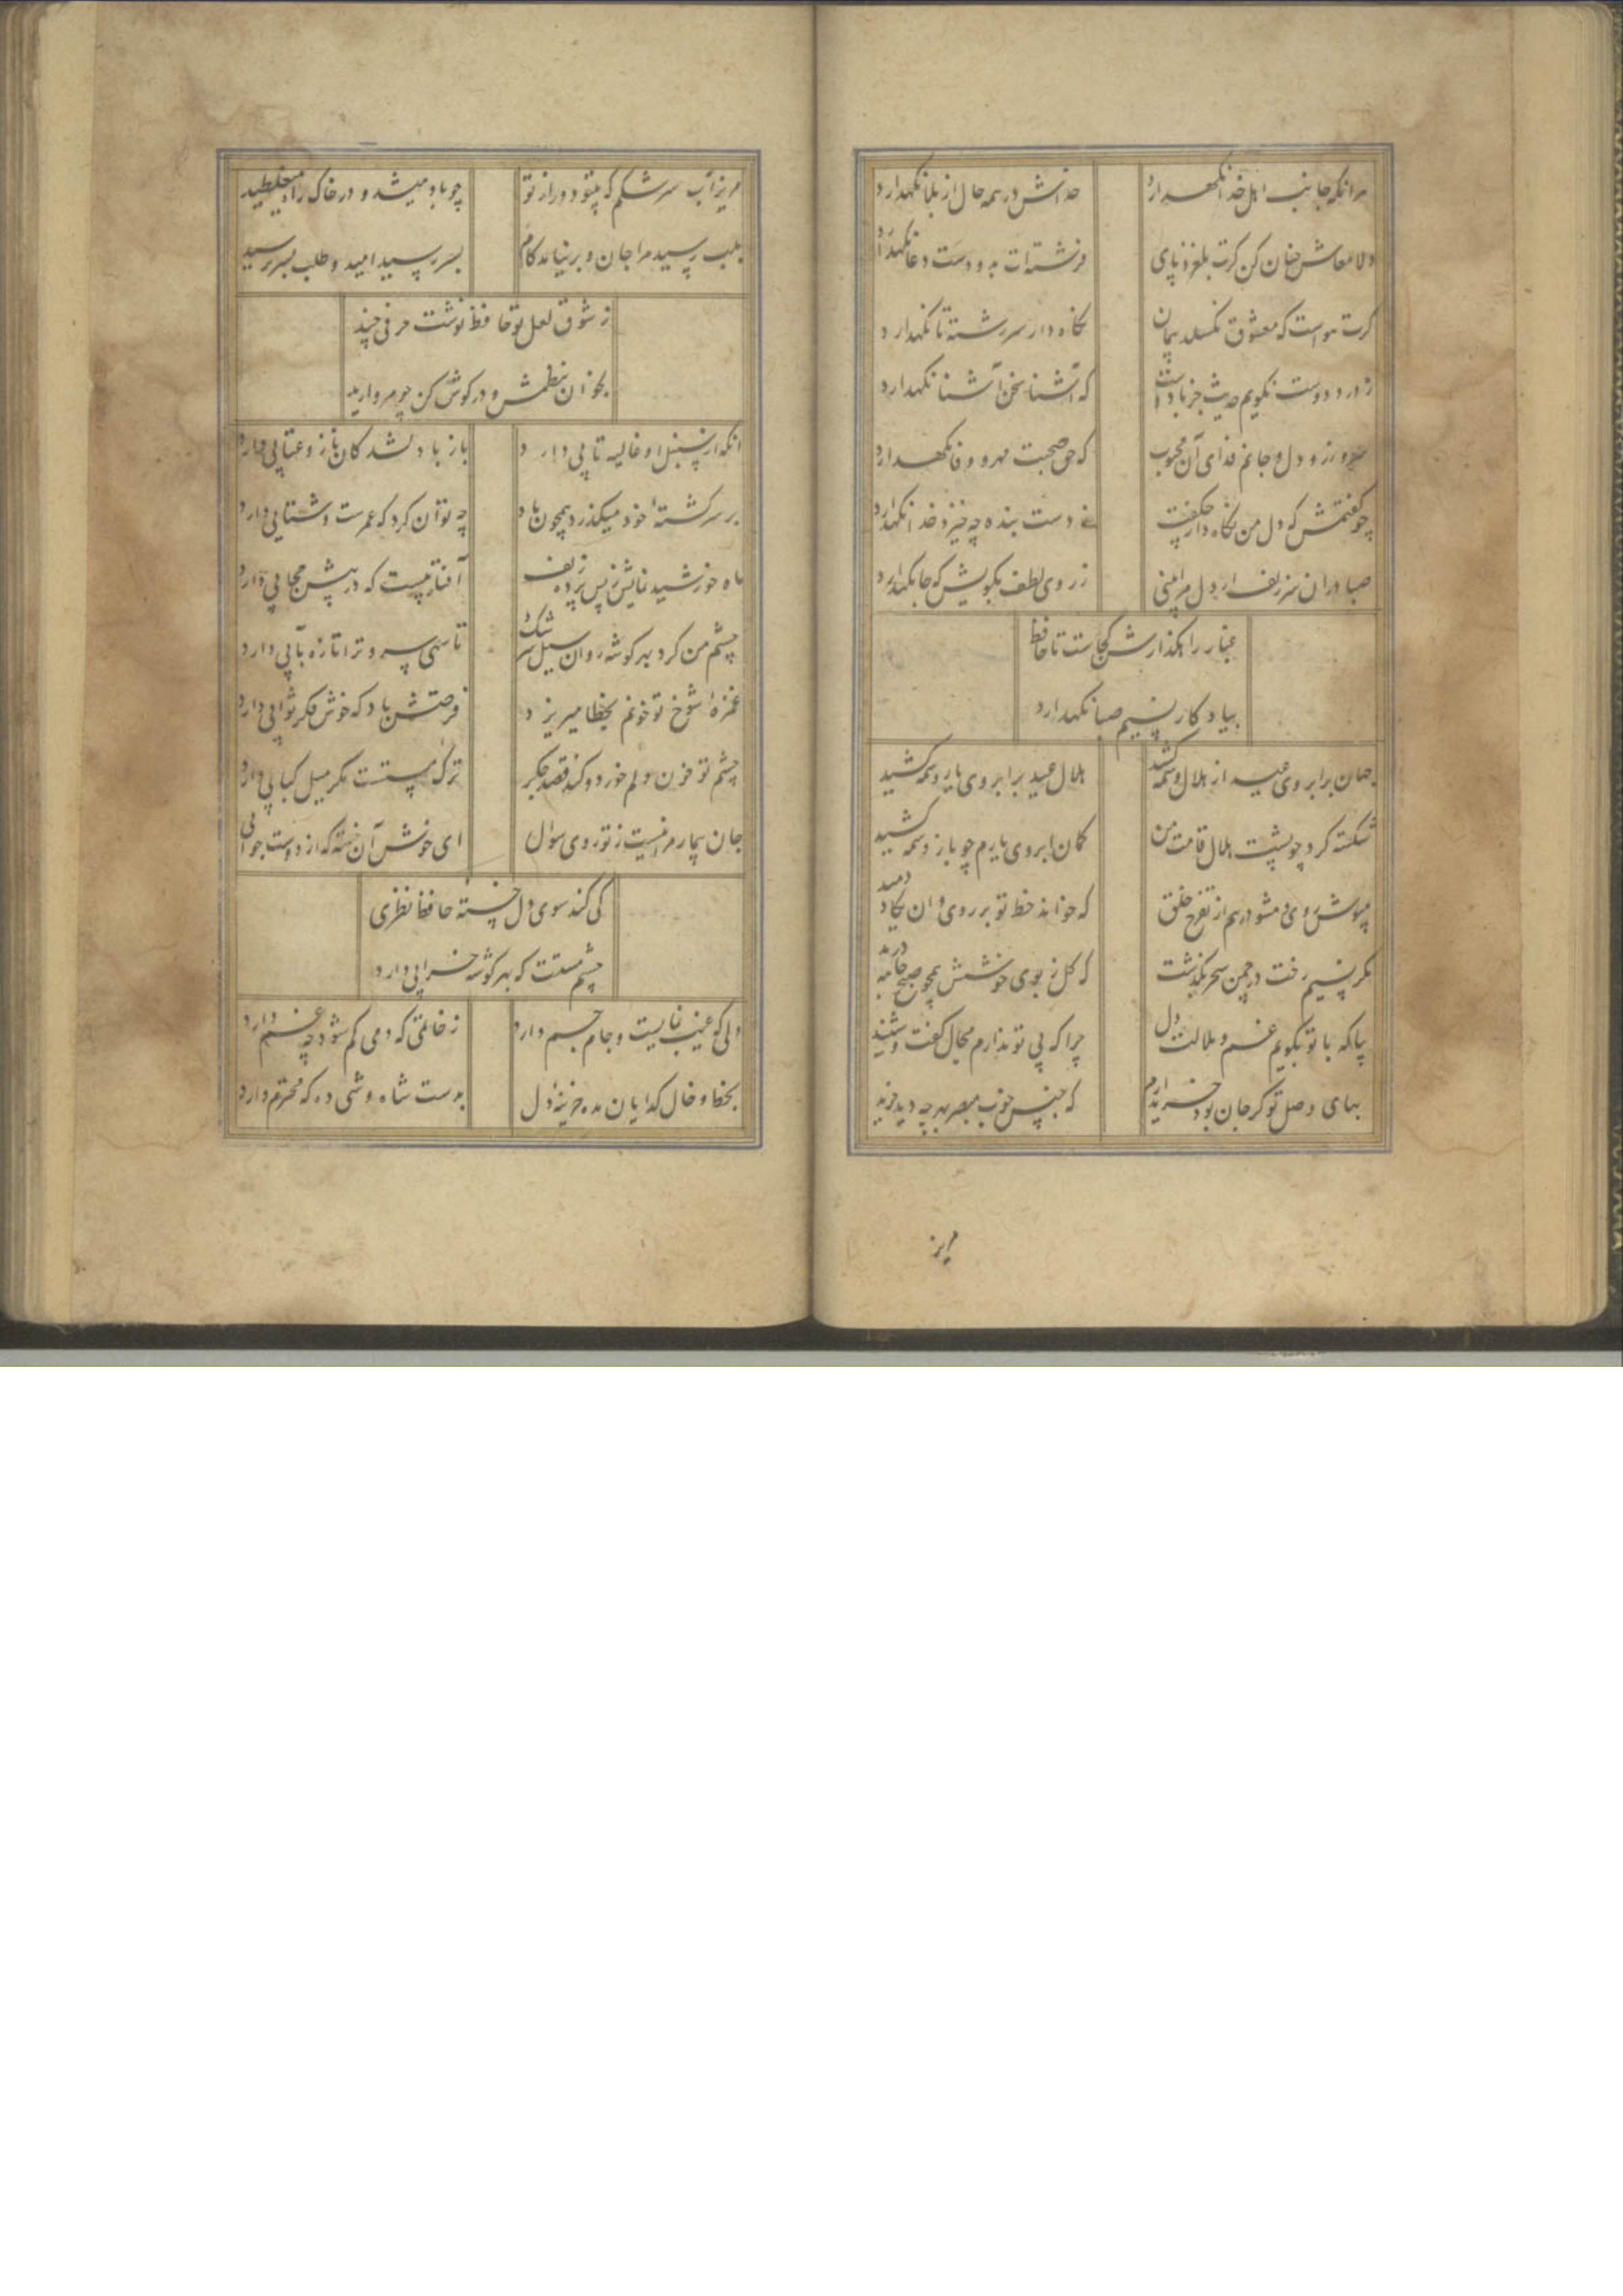 هرانکه جانب اهل خدا نکهدارد خداش در همه حال از بلا نکهدارد
دلا معاش چنان کن کرت بلغزد پای فرشته‌ات بدو دست دعا نکهدارد
کرت هواست که معشوق نکسلد پیمان نکاه دار سر رشته تا نکهدارد
ز درد دوست نکویم حدیث جز با دوست که آشنا سخن آشنا نکهدارد
سر و زر و دل و جانم فدای آن محبوب که حق صحبت مهر و وفا نکهدارد
چو کفتمش که دل من نکاه دار چکفت ز دست بنده چه خیزد خدا نکهدارد
صبا دران سر زلف ار دل مرا بینی ز روی لطف بکویش که جا نکهدارد
غبار راهکذارش کجاست تا حافظ
بیادکار نسیم صبا نکهدارد
جهان بر ابروی عید از هلال وسمه کشید هلال عید بر ابروی یار وسمه کشید
شکسته کرد چو پشت هلال قامت من کمان ابروی یارم چو باز وسمه کشید
مپوش روی و مشو درهم از تفرج خلق که خواند خط تو بر روی و ان یکاد دمید
مکر نسیم رخت در چمن سحر بکذشت که کل ز بوی خوشش همچو صبح جامه درید
بیا که با تو بکویم غم و ملالت دل چرا که بی تو ندارم مجال کفت و شنید
بهای وصل تو کر جان بود خریدارم که جنس خوب مبصر بهر چه دید خرید
مریز
مریز آب سرشکم که بیتو دور از تو چو باد میشد و در خاک راه میغلطید
بلب رسید مرا جان و بر نیامد کام بسر رسید امید و طلب بسر نرسید
ز شوق لعل تو حافظ نوشت حرفی چند
بخوان بنظمش و در کوش کن چو مروارید
انکه از سنبل او غالیه تابی دارد باز با دلشدکان ناز و عتابی دارد
بر سر کشتهٔ خود میکذرد همچون باد چه توان کرد که عمرست و شتابی دارد
ماه خورشید نمایش ز پس پرده زلف آفتابیست که در پیش سحابی دارد
چشم من کرد بهر کوشه روان سیل سرشک تا سهی سرو ترا تازه بآبی دارد
غمزهٔ شوخ تو خونم بخطا میریزد فرصتش باد که خوش فکر ثوابی دارد
چشم تو خون دلم خورد و کند قصد جکر ترک مستست مکر میل کبابی دارد
جان بیمار مرا نیست ز تو روی سوال ای خوش آن خسته که از دوست جوابی
کی کند سوی دل خسته حافظ نظری
چشم مستت که بهر کوشه خرابی دارد
دلی کو غیب نمایست و جام جم دارد ز خاتمی که دمی کم شود چه غم دارد
بخط و خال کدایان مده خزینهٔ دل بدست شاه وشی ده که محترم دارد